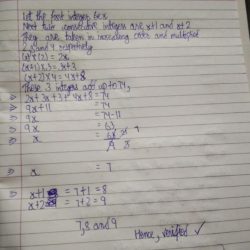 Let the first integer be x
Next two consecutive integers are x+1 and x+2
They are taken in increasing order and multiplied
2, 3 and 4 respectively
(x) × (2) = 2x
(x+1) × 3 = 3x+3
(x+2) × 4 = 4x+8
These 3 integers add up to 74,
⇒ 2x + 3x + 3 + 4x + 8 = 74
⇒ 9x + 11 = 74
⇒ 9x = 74-11
⇒ 9x = 63
⇒ x = 7
⇒ x+1 = 7+1 = 8
x+2 = 7+2 = 9
7, 8 and 9
Hence, verified ✓